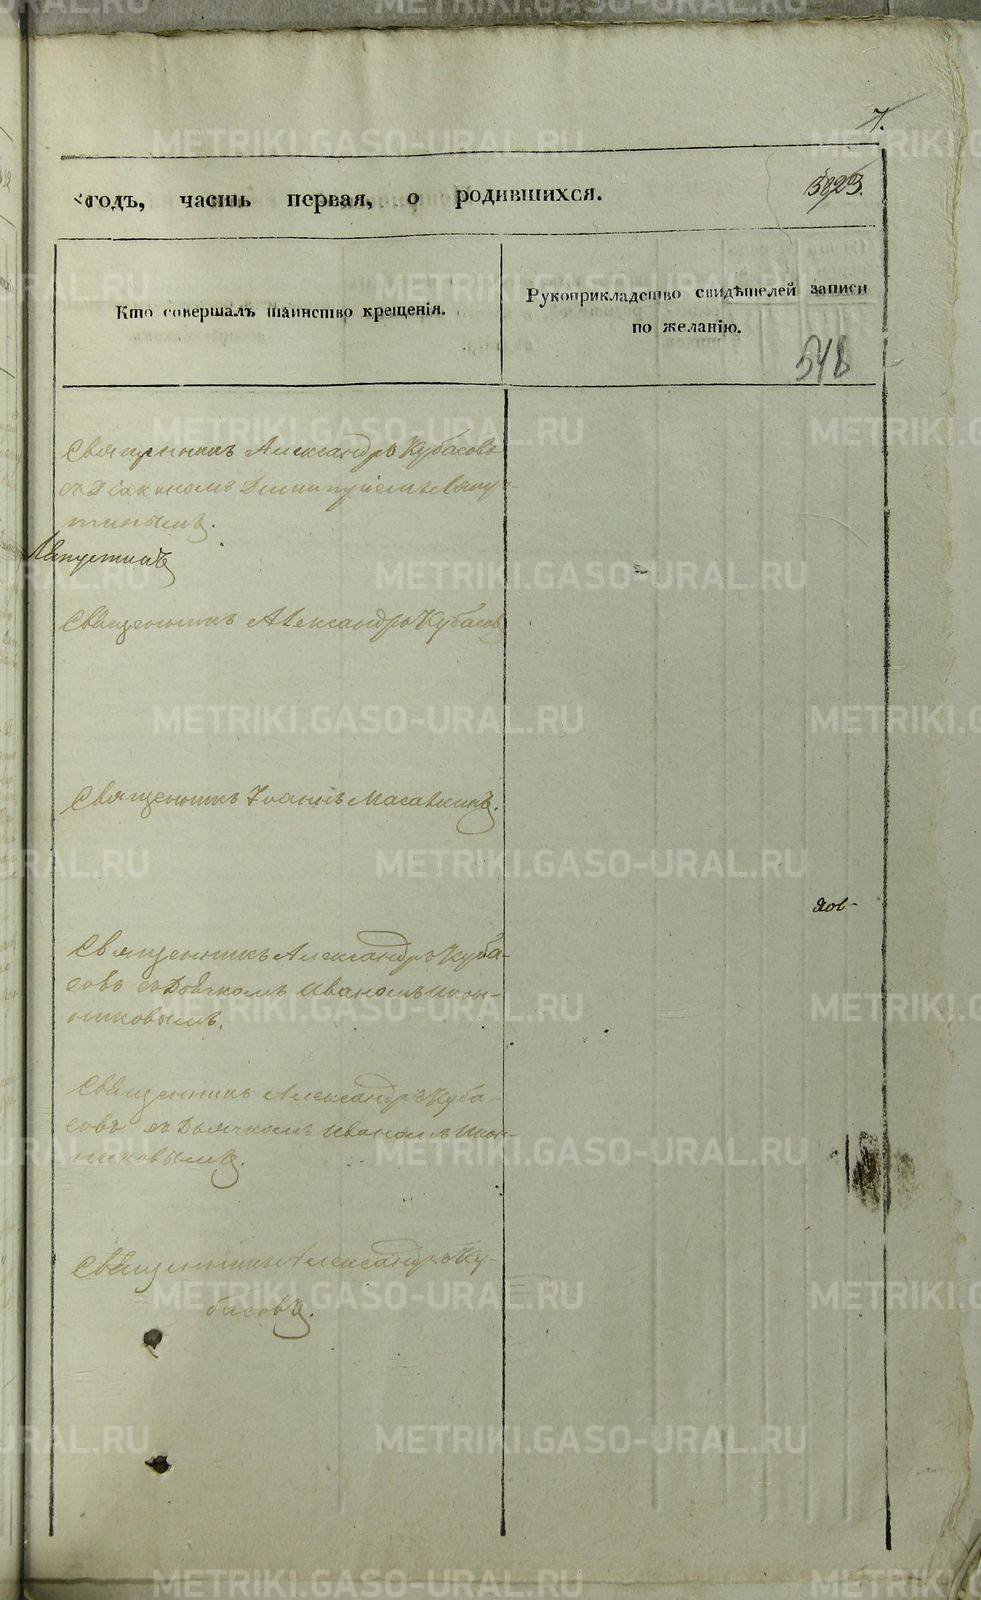 7.
годъ, часть первая, о родившихся.
Кто совершалъ таинство крещенія.
Рукоприкладство свидѣтелей записи
по желанію.
548
Священникъ Александръ Кубасовъ
съ Діакономъ
Священникъ Александръ Кубасовъ
Священникъ Іоаннъ
Священникъ Александръ Куба-
совъ съ Дьячкомъ Иваномъ Икон-
никовымъ.
Священникъ Александръ Куба-
совъ съ Дьячкомъ Иваномъ Икон-
никовымъ.
Священникъ Александръ Ку-
басовъ.
METRIKI.GASO-URAL.RU